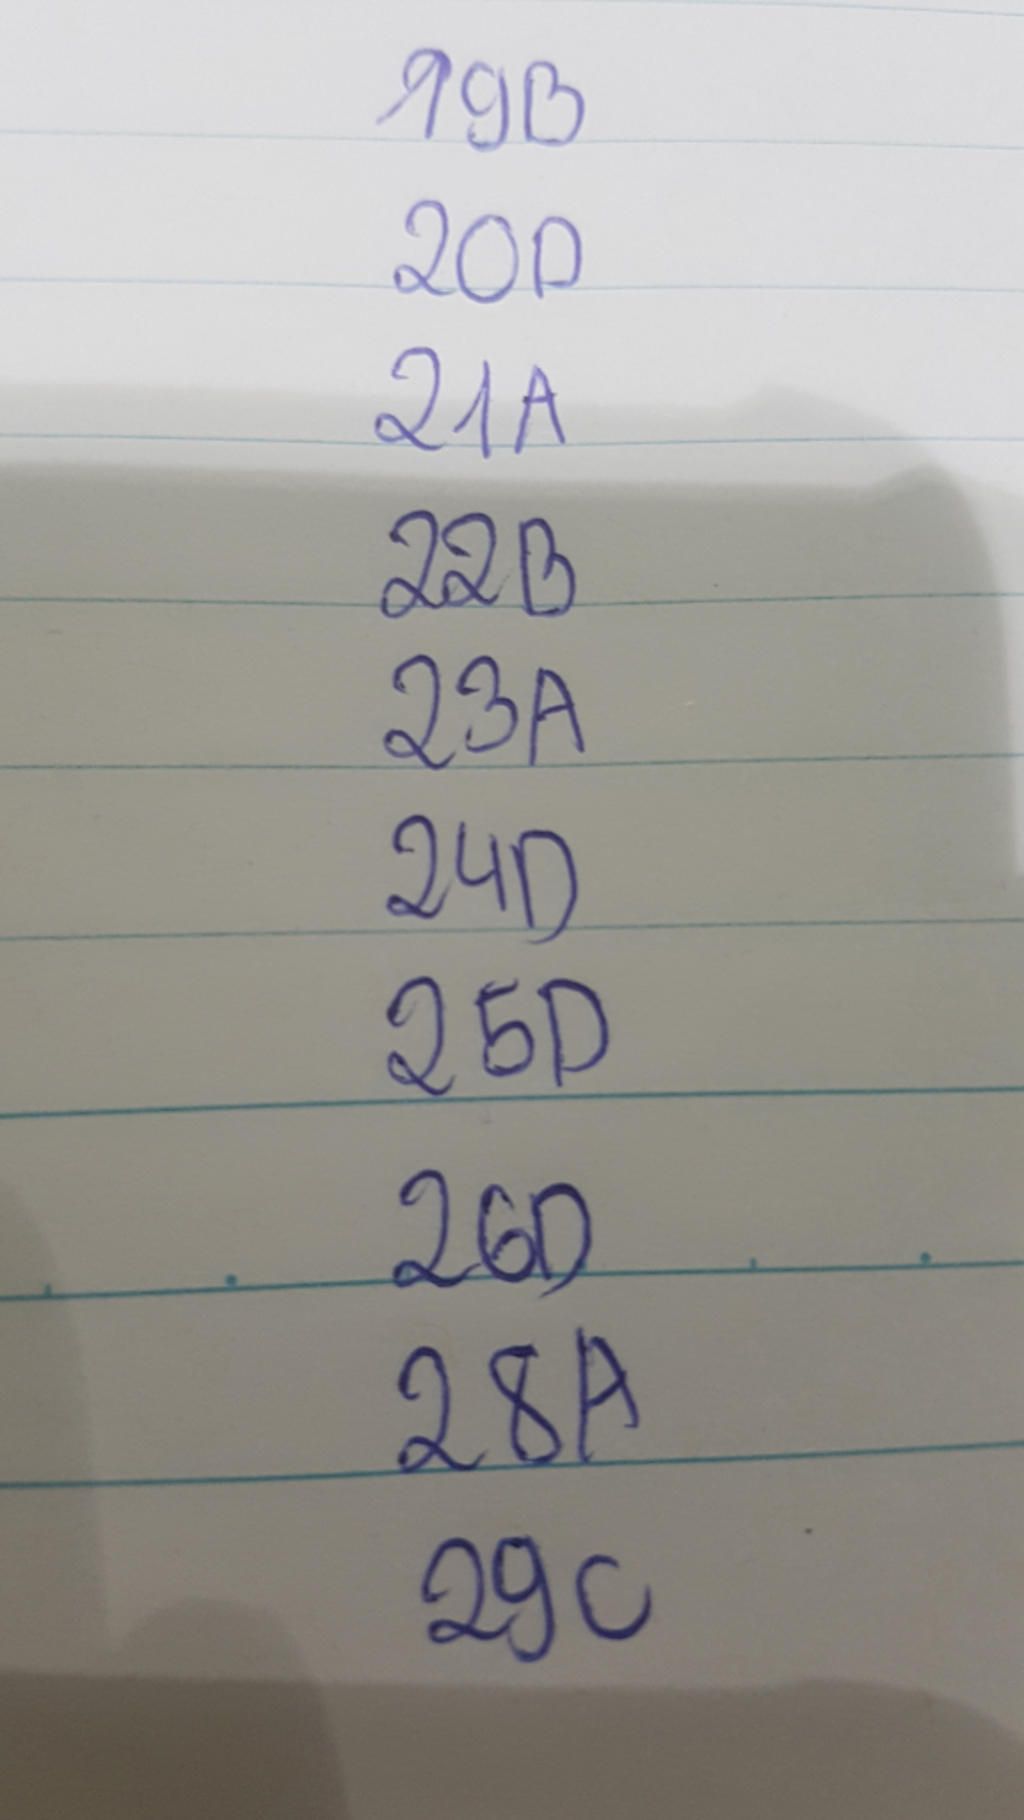 19B
20D
21A
22B
23A
24D
25D
26D
28A
29C